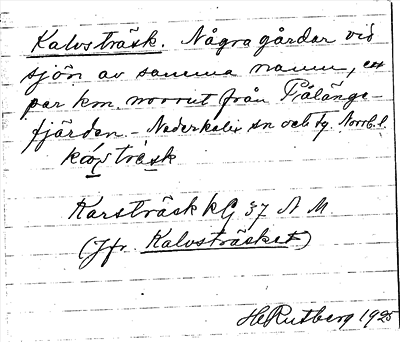 Kalvsträsk. Några gårdar vid
sjön av samma namn, ett
par km. norrut från Pålänge-
fjärden. - Nederkalix sn och tg. Norrb. l.
Karsträsk kG 37 N M
(Jfr. Kalvsträsket)
H Rutberg 1925